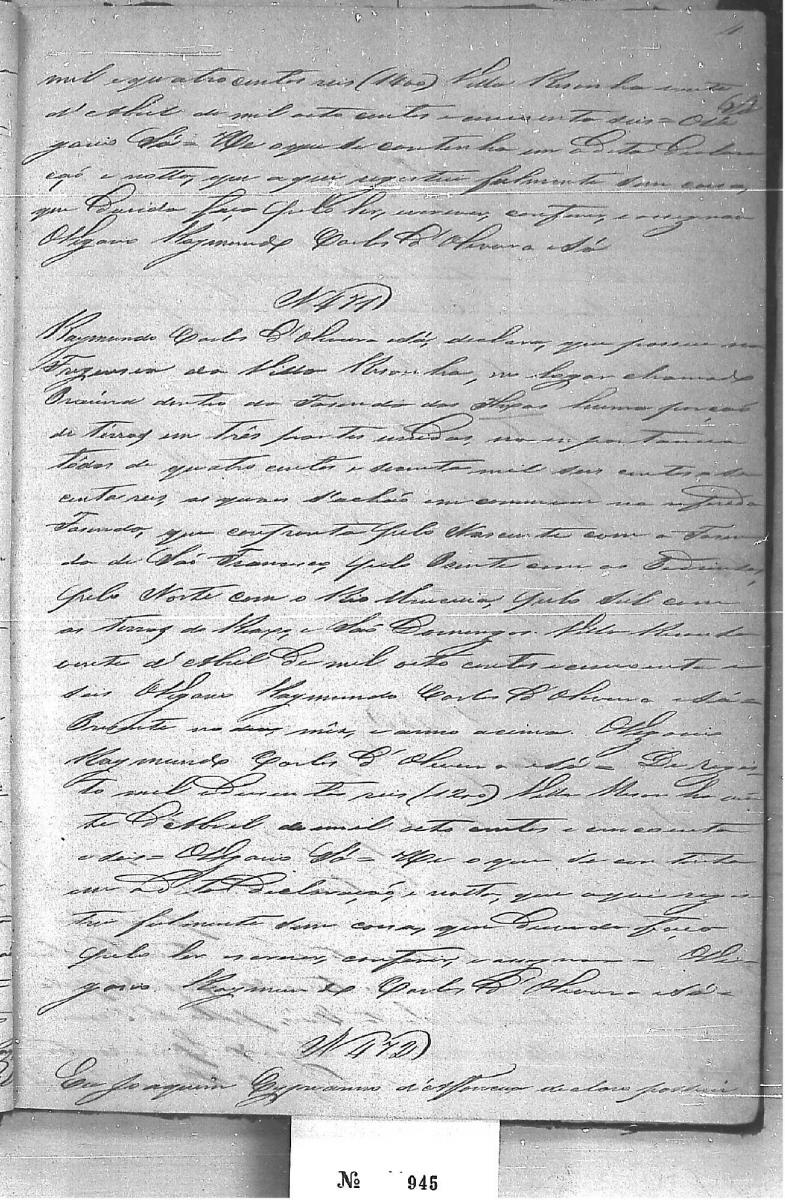 mil e quatro centos reis (1400) Villa Risonha vinte
d'Abril de mil oito centos e cincoenta e seis = O Vi
gario Sá = He o que se continha em a dita Declara
çaõ e notta, que aqui registrei fielmente sem cousa,
que Duvida faça pelo ler, escrever, conferir, e assignar
O Vigario Raymundo Carlos D'Oliveira e Sá
N 471
Raymundo Carlos D'Oliveira e Sá, declara, que possue na
Freguesia da Villa Risonha, no lugar chamado
dentro da Fasenda das huma porçaõ
de terras em três partes unidas, na importancia
tôdas de quatro centos e mil seis centos e
centa reis, as quaes s'achaõ em commum na referida
Fasenda, que confronta pelo Nascente com a Fasen
da de São Francisco, pelo Poente com as
pelo Norte com o Rio Urucuia, pelo Sul com
as terras do e São Domingos. Villa Risonha
vinte d'Abril de mil oito centos e cincoenta e
seis O Vigario Raymundo Carlos D'Oliveira e Sá =
Presente no dia, mês, e anno acima. O Vigario
Raymundo Carlos D'Oliveira e Sá = De regis
to mil e dusentos reis (1200) Villa Risonha vin
te D'Abril de mil oito centos e cincoenta
e seis = O Vigario Sá = He o que se continha
em a Dita Declaraçaõ, e notta, que aqui regis
trei fielmente sem cousa, que Duvida faça
pelo ler escrever, conferir, e assignar = O Vi
gario Raymundo Carlos D'Oliveira e Sá =
N 472
Eu Joaquim Cypriano d' declaro possuir
№ 945